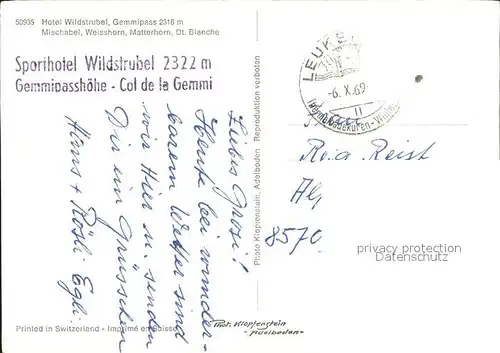 50935 Hotel Wildstrubel, Gemmipass 2316 m
Mischabel, Weisshorn, Matterhorn, Dt. Blanche
Sporthotel Wildstrubel 2322 m
Gemmipasshöhe - Col de la Gemmi
Liebes Grosi!
Heute bei wunder-
barem Wetter sind
wir Hier u. senden
Dir ein Grüsschen
Hans + Rösli Egli.
Photo Klopfenstein, Adelboden Reproduktion verboten
LEUKER
-6.X.69-
11
Rosa Reist
8570
privacy protection
Datenschutz
Phot. Klopfenstein
-Adelboden-
Printed in Switzerland - Imprimé en Suisse